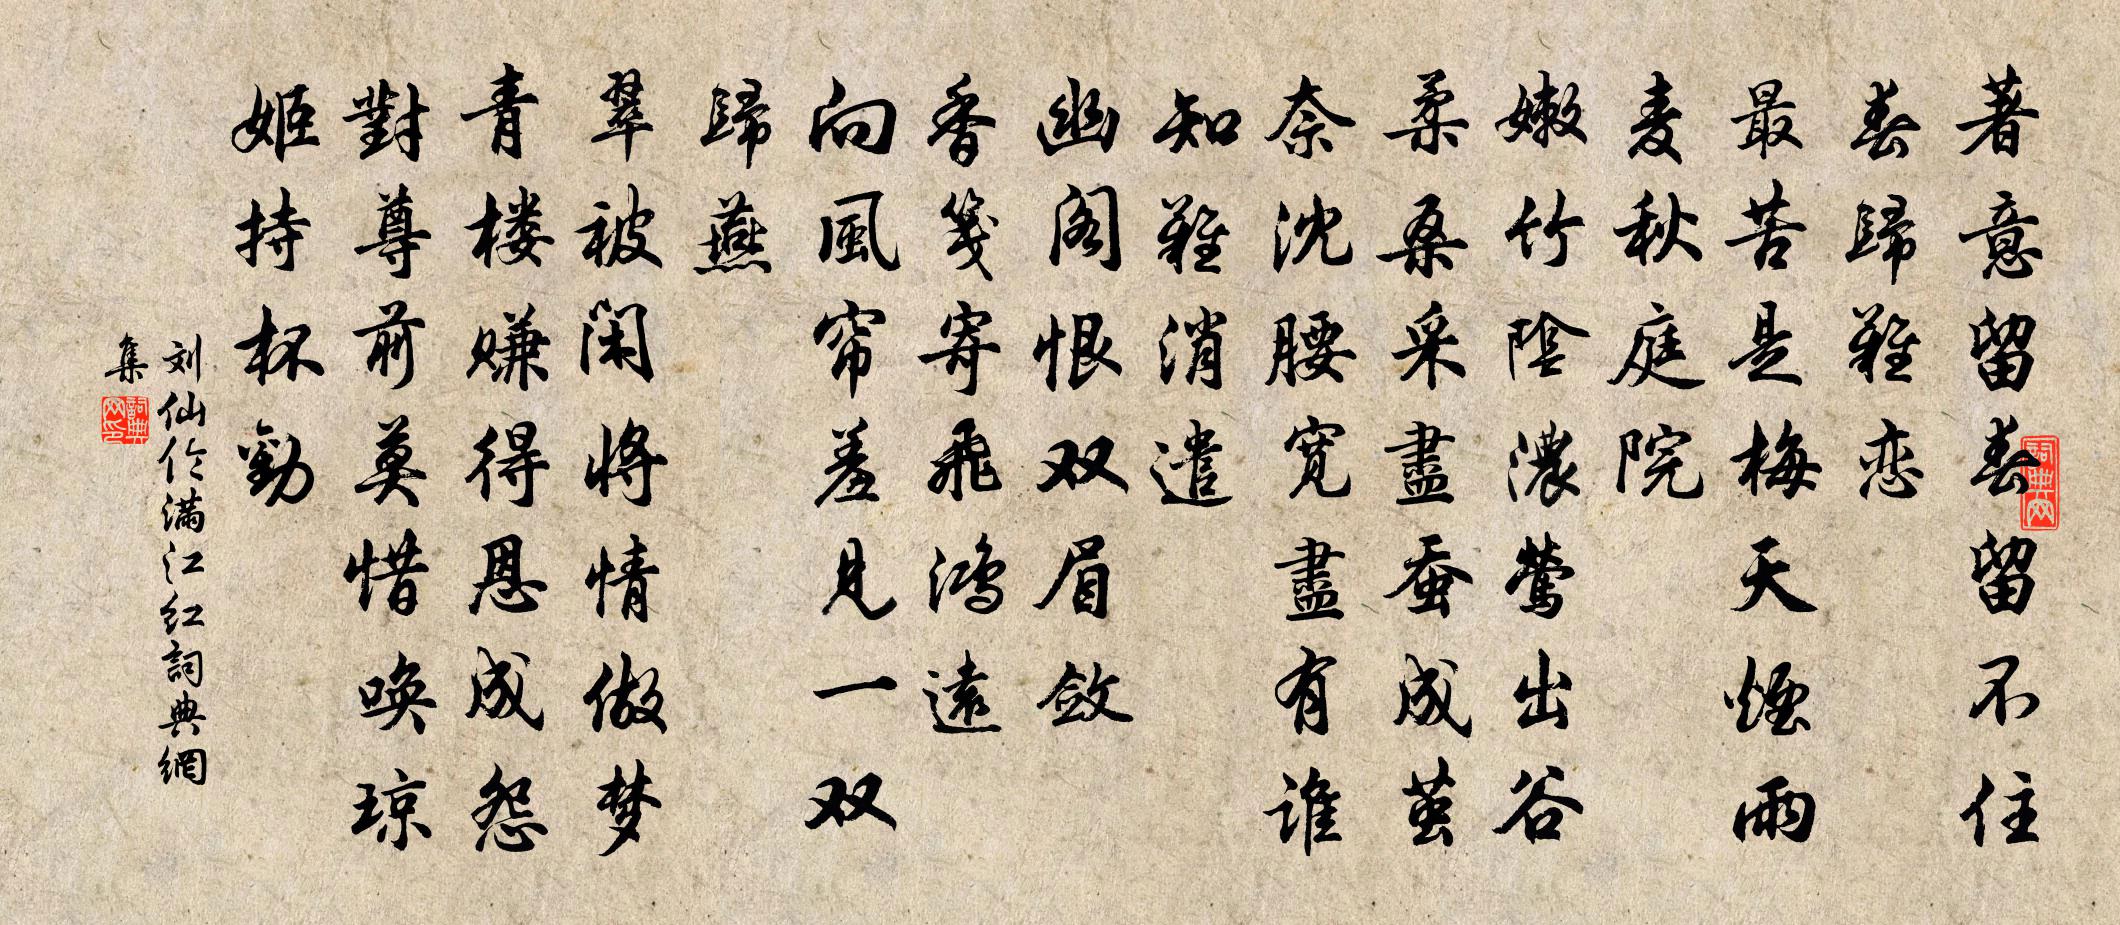 著意留春留不住
春歸難恋
最苦是梅天煙雨
麦秋庭院
嫩竹陰濃鶯出谷
柔桑采盡蚕成茧
奈沈腰寛盡有誰
知難消遣
幽阁恨双眉敛
香箋寄飛鴻遠
向風帘羞見一双
歸燕
翠被闲将情做梦
青楼嫌得恩成怨
對尊前莫惜唤琼
姬持杯勸
刘仙伦满江红詞典網
集
詞典网
詞典网印